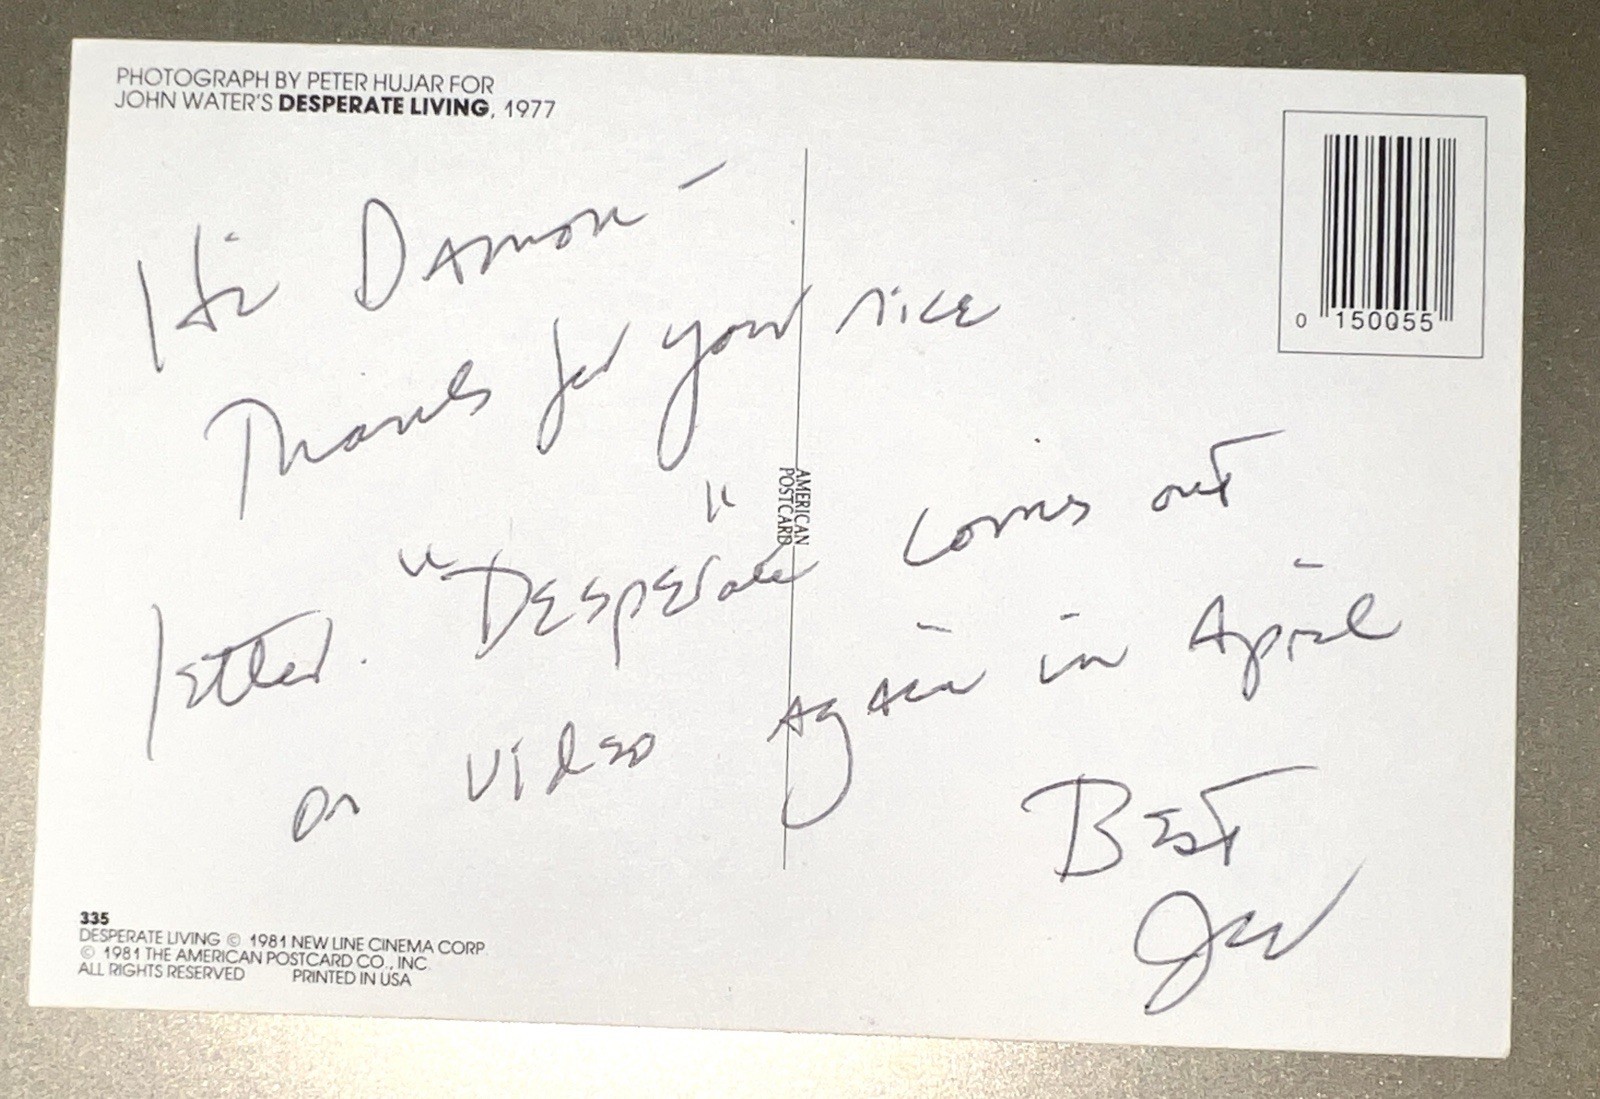 PHOTOGRAPH BY PETER HUJAR FOR
JOHN WATER'S DESPERATE LIVING, 1977
0 150055
Hi Damon —
Thanks for your nice
letter. "Desperate" comes out
on video again in April
Best
AMERICAN
POSTCARD
335
DESPERATE LIVING © 1981 NEW LINE CINEMA CORP.
© 1981 THE AMERICAN POSTCARD CO., INC.
ALL RIGHTS RESERVED PRINTED IN USA